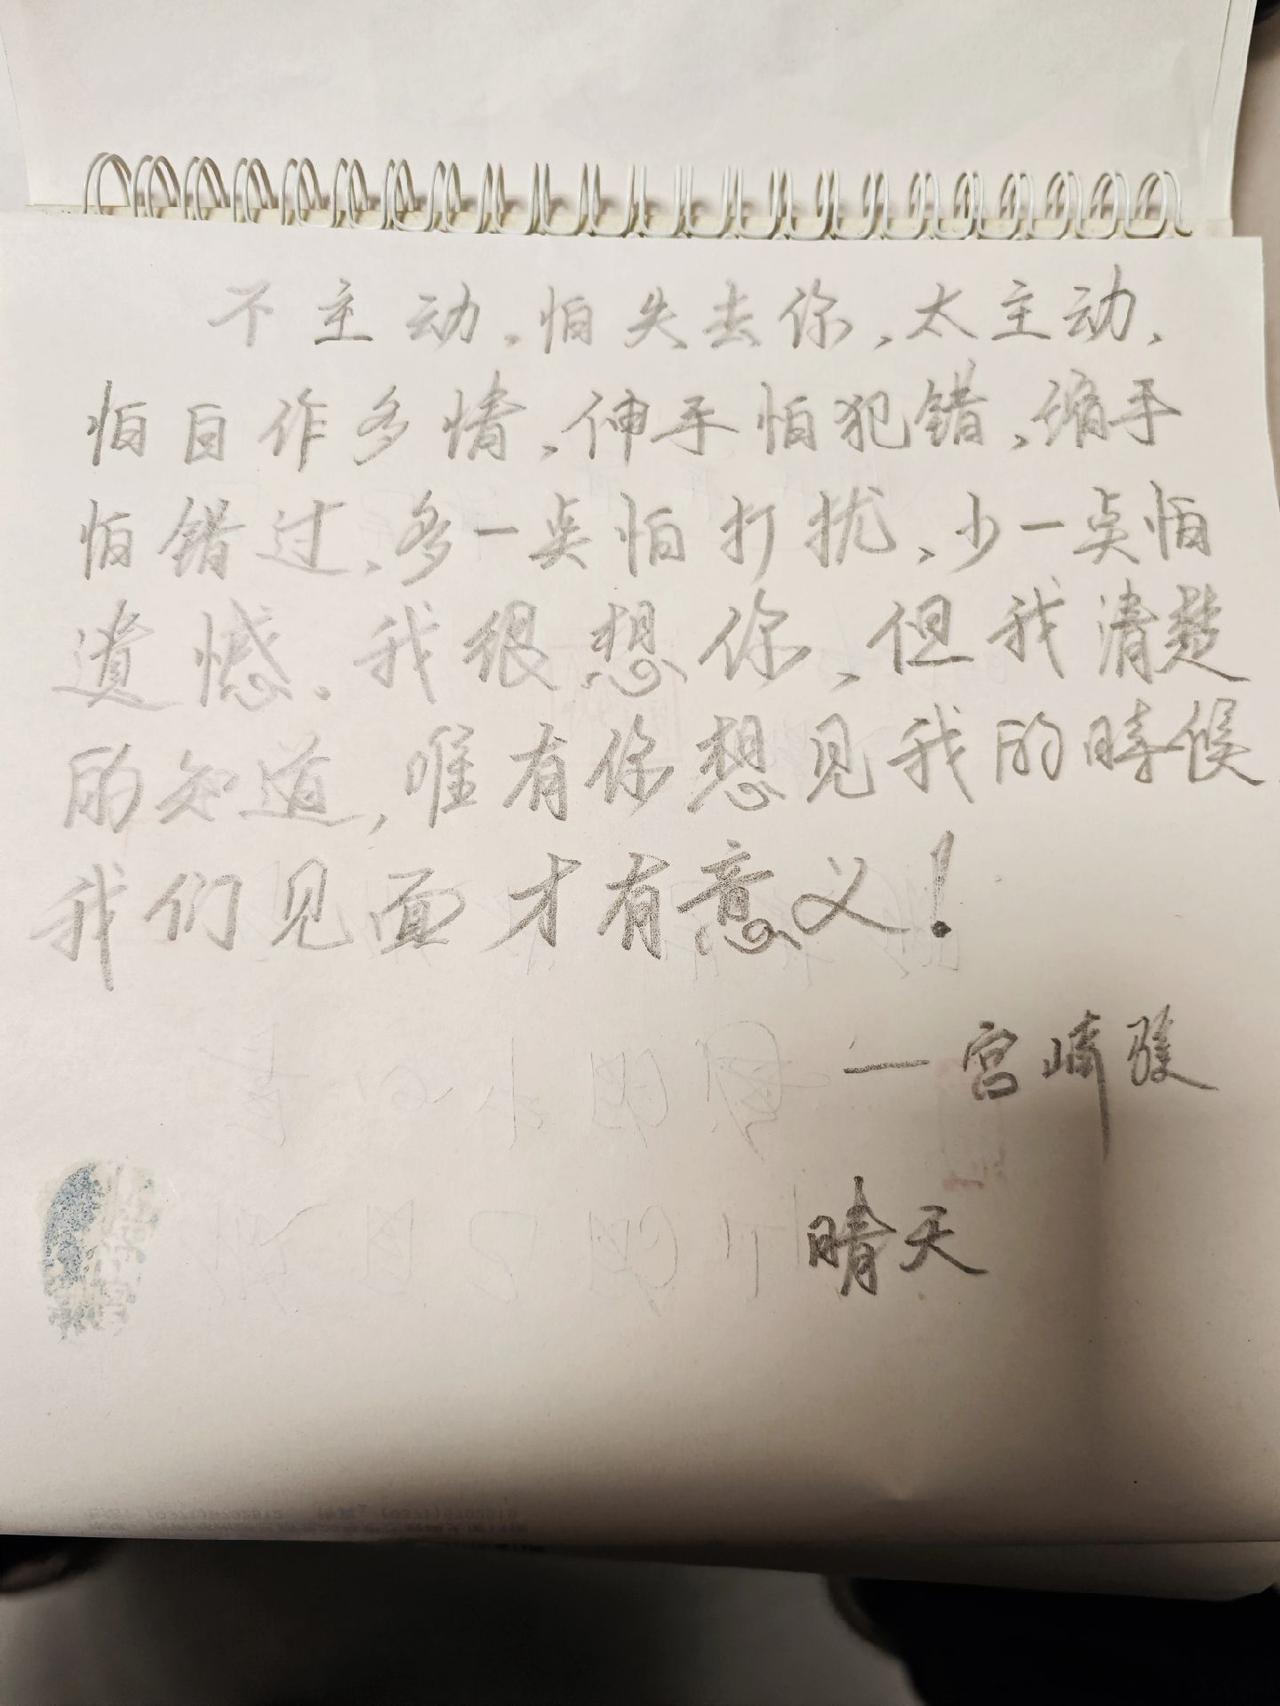 不主动,怕失去你,太主动,
怕自作多情,伸手怕犯错,缩手
怕错过,多一点怕打扰,少一点怕
遗憾.我很想你,但我清楚
的知道,唯有你想见我的时候
我们见面才有意义!
—宫崎骏
晴天